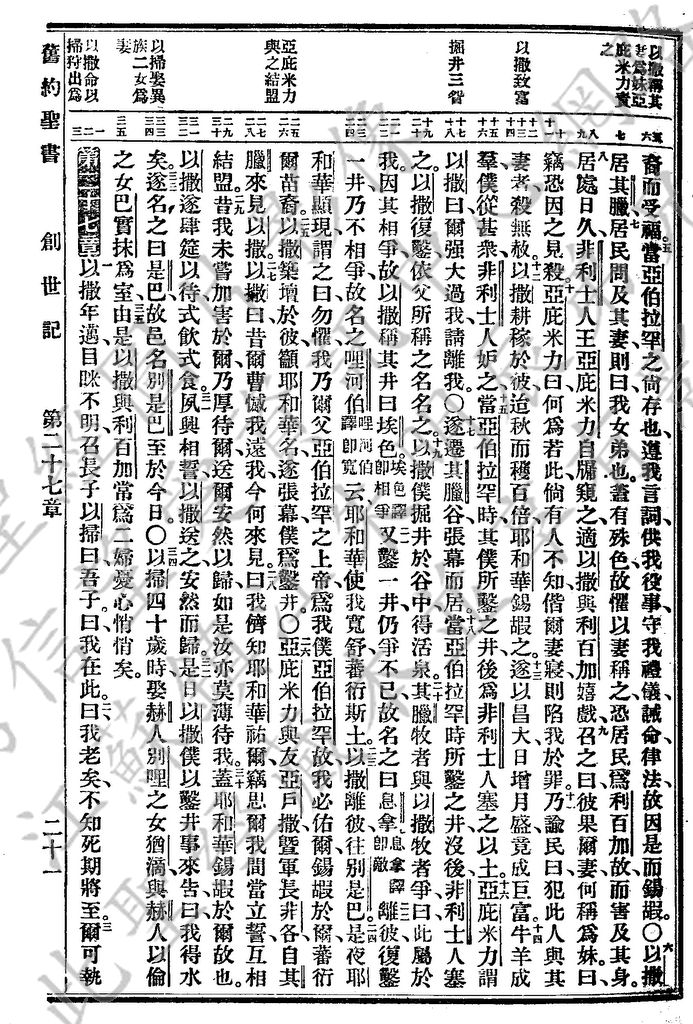 以撒稱其
妻爲妹亞
庇米力責
之
以撒致富
掘井三眢
亞庇米力
與之結盟
以掃娶異
族二女爲
妻
以撒命以
掃狩出爲
裔而受福當亞伯拉罕之尙存也遵我言詞供我役事守我禮儀誡命律法故因是而錫嘏〇以撒
居其臘居民問及其妻則曰我女弟也蓋有殊色故懼以妻稱之恐居民爲利百加故而害及其身
居處日久非利士人王亞庇米力自牖窺之適以撒與利百加嬉戲召之曰彼果爾妻何稱爲妹曰
竊恐因之見殺亞庇米力曰何爲若此倘有人不知偕爾妻寢則陷我於罪乃諭民曰犯此人與其
妻者殺無赦以撒耕稼於彼迨秋而穫百倍耶和華錫嘏之遂以昌大日增月盛竟成巨富牛羊成
羣僕從甚衆非利士人妒之當亞伯拉罕時其僕所鑿之井後爲非利士人塞之以土亞庇米力謂
以撒曰爾强大過我請離我〇遂遷其臘谷張幕而居當亞伯拉罕時所鑿之井沒後非利士人塞
之以撒復鑿依父所稱之名名之以撒僕掘井於谷中得活泉其臘牧者與以撒牧者爭曰此屬於
我因其相爭故以撒稱其井曰埃色埃色譯卽相爭又鑿一井仍爭不已故名之曰息拿息拿譯卽敵離彼復鑿
一井乃不相爭故名之哩河伯哩河伯譯卽寬云耶和華使我寬舒蕃衍斯土以撒離彼往別是巴是夜耶
和華顯現謂之曰勿懼我乃爾父亞伯拉罕之上帝爲我僕亞伯拉罕故我必佑爾錫嘏於爾蕃衍
爾苗裔以撒築壇於彼籲耶和華名遂張幕僕爲鑿井〇亞庇米力與友亞戶撒曁軍長非各自其
臘來見以撒以撒曰昔爾曹憾我遠我今何來見曰我儕知耶和華祐爾竊思爾我間當立誓互相
結盟昔我未嘗加害於爾乃厚待爾送爾安然以歸如是汝亦莫薄待我蓋耶和華錫嘏於爾故也
以撒遂肆筵以待式飲式食夙興相誓以撒送之安然而歸是日以撒僕以鑿井事來告曰我得水
矣遂名之曰是巴故邑名別是巴至於今日〇以掃四十歲時娶赫人別哩之女猶滴與赫人以倫
之女巴實抹爲室由是以撒與利百加常爲二婦憂心悄悄矣
第二十七章以撒年邁目眯不明召長子以掃曰吾子曰我在此曰我老矣不知死期將至爾可執
舊約聖書　創世記　第二十七章　二十一